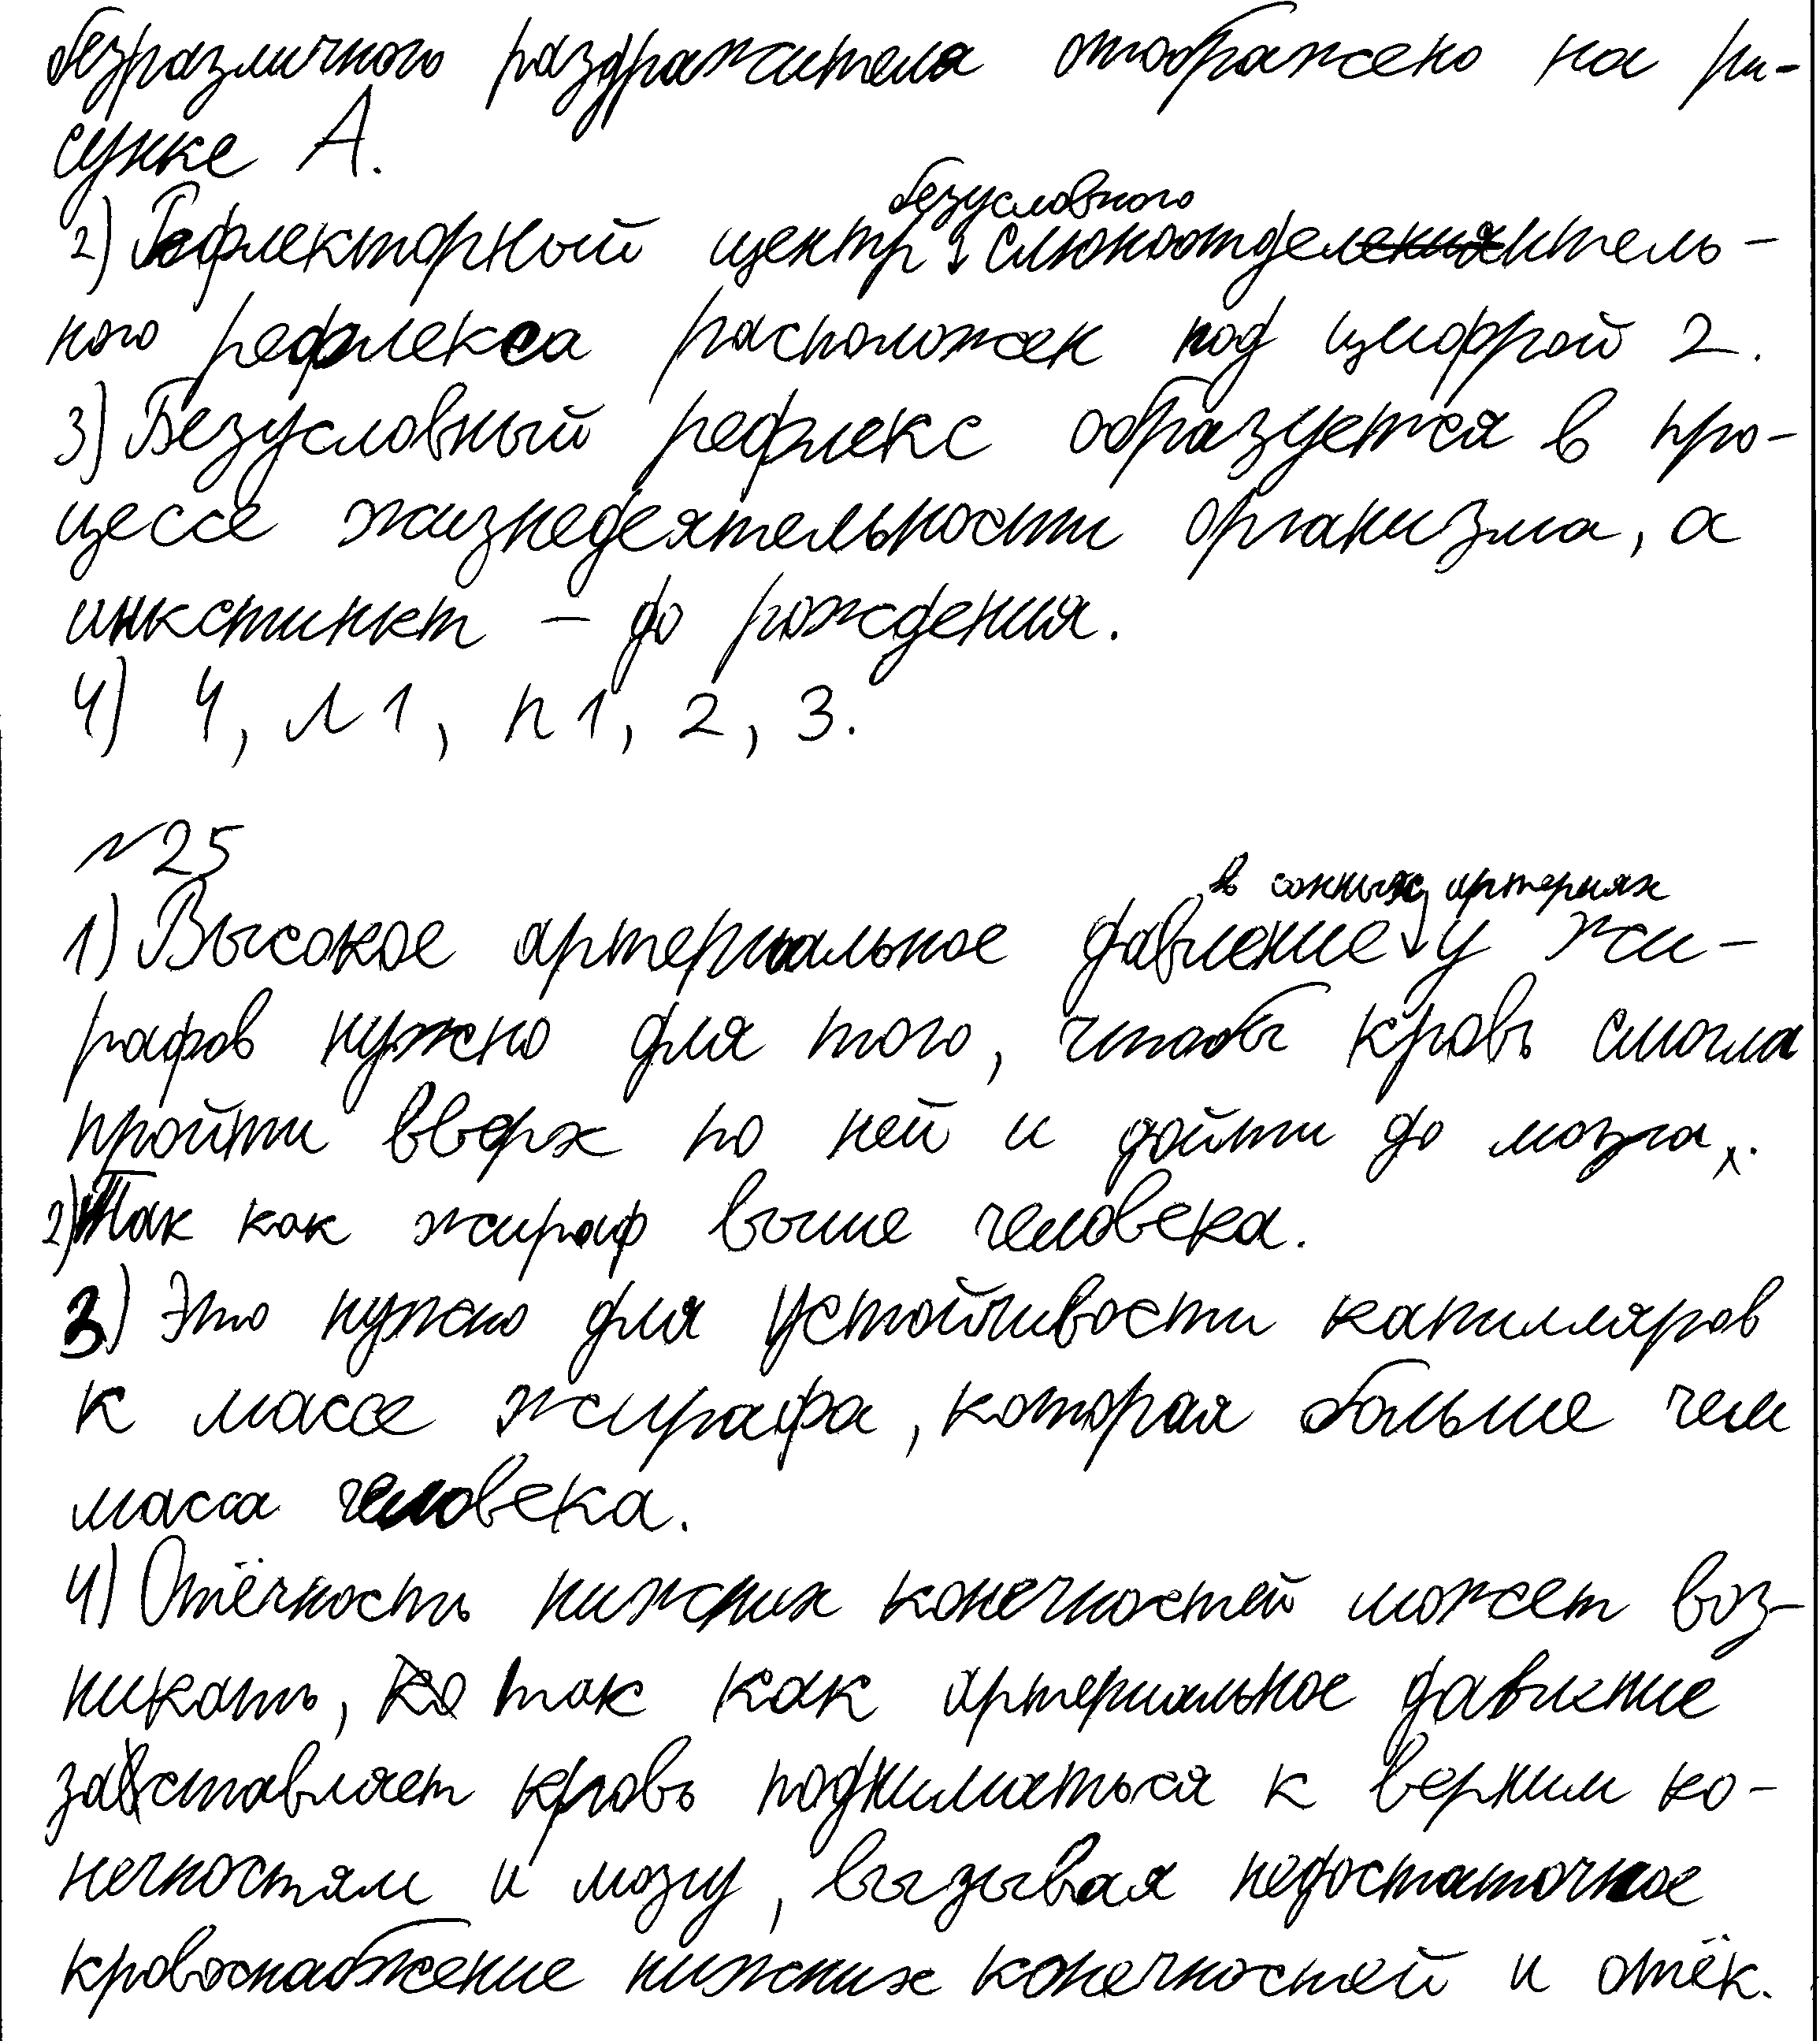 безразличного раздражителя отображено на ри-
сунке А.
безусловного
2) Рефлекторный центр слюноотделительь-
ного рефлекса расположен под цифрой 2.
3) Безусловный рефлекс образуется в про-
цессе жизнедеятельности организма, а
инкстинкт – до рождения.
4) 4, л1, п1, 2, 3.
№25
в сонных артериях
1) Высокое артериальное давление у жи-
рафов нужно для того, чтобы кровь смогла
пройти вверх по ней и дойти до мозга.
2) Так как жираф выше человека.
3) Это нужно для устойчивости капилляров
к массе жирафа, которая больше чем
масса человека.
4) Отёчность нижних конечностей может воз-
никать, так как артериальное давление
заставляет кровь подниматься к верхним ко-
нечностям и мозгу, вызывая недостаточное
кровоснабжение нижних конечностей и отёк.